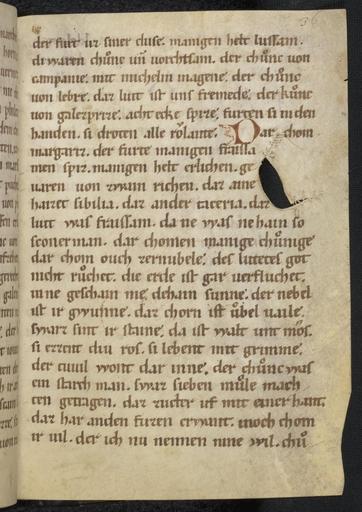 der furt uz siner cluse. manigen helt lussam.
di waren chůne uñ vorchtsam. der chůnc von
campanie. mit michelin magene. der chůnc
von lebre. daz lut ist uns fremede. der kůnc
von galerprize. acht ecke spize. furten si in den
handen. si droten alle rŏlante. Dar chom
margariz. der furte manigen
men spiz. manigen helt erlichen. ge
uaren von zwain richen. daz aine
haizet sibilia. daz ander taceria. daz
luit was fraissam. da ne was nehain so
sconer man. dar chomen manige chůnige
dar chom ouch zernubele. des lutetes got
nicht růchet. die erde ist gar uerfluchet.
ine geschain nie dehain sunne. der nebel
ist ir gwunne. daz chorn ist ůbel uaile.
swarz sint ir staine. da ist walt unt mos.
si ezzent diu ros. si lebent mit grimme.
der tiuuil wont dar inne. der chůnc was
ein starch man. swaz sieben můle mach
ten getragen. daz zucter uf mit einer hant.
daz har an den fuzen erwant. noch chom
ir uil. der ich nu nennen nine wil. chů